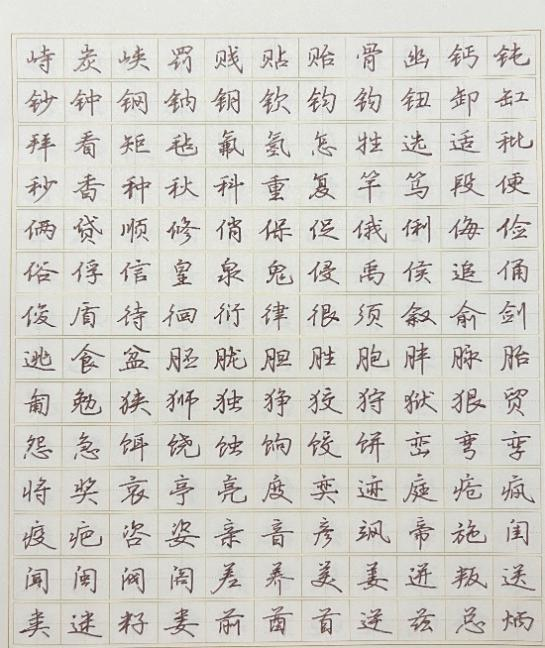 峙炭峡罚贱贴贻骨幽钙钝
钞钟钢钠钥钦钧钩钮卸缸
拜看矩毡氟氢怎牲选适秕
秒香种秋科重复竿笃段便
俩贷顺修俏保促俄俐侮俭
俗俘信皇泉鬼侵禹侯追俑
俊盾待徊衍律很须叙俞剑
逃食盆胚胧胆胜胞胖脉胎
匍勉狭狮独狰狡狩狱狠贸
怨急饵饶蚀饷饺饼峦弯孪
将奖哀亭亮度奕迹庭疮疯
疫疤咨姿亲音彦飒帝施闺
闻闽阀阁差养美姜迸叛送
类迷籽娄前酋首逆兹总炳